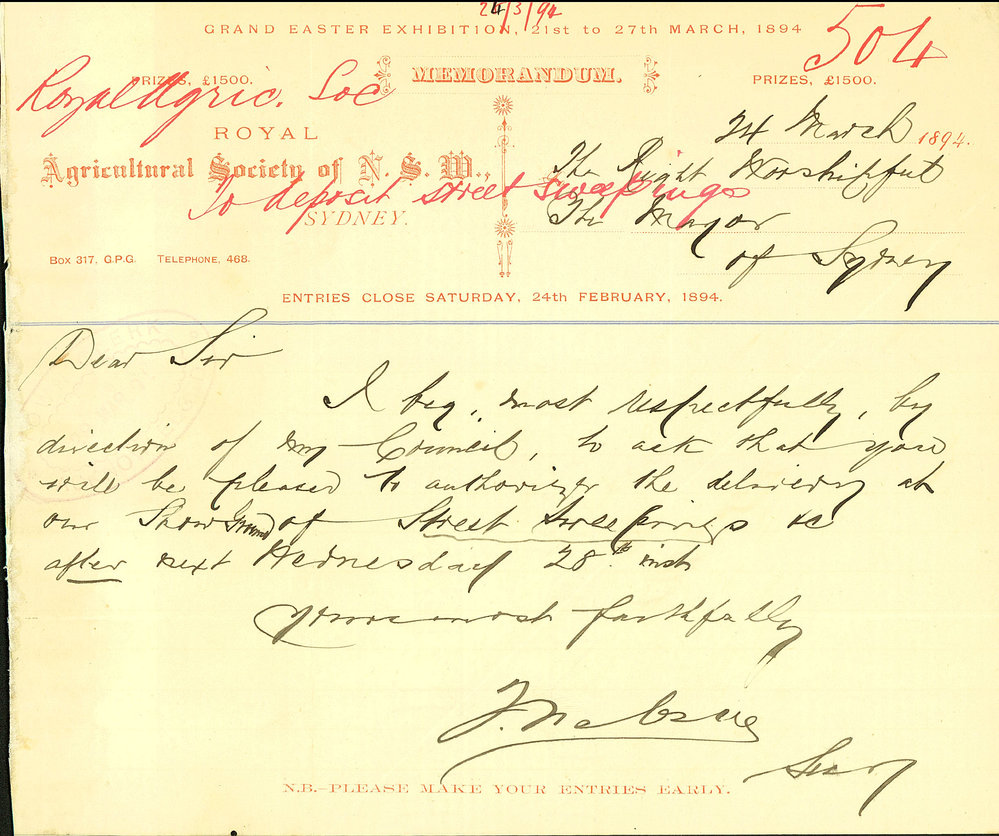 24/3/94
GRAND EASTER EXHIBITION, 21st to 27th MARCH, 1894
504
PRIZES, £1500.
MEMORANDUM.
PRIZES, £1500.
Royal Agric. Soc
24 March 1894.
ROYAL
Agricultural Society of N. S. W.,
SYDNEY.
To deposit street sweepings
The Right Worshipful
The Mayor
of Sydney
BOX 317, G.P.G. TELEPHONE, 468.
ENTRIES CLOSE SATURDAY, 24th FEBRUARY, 1894.
Dear Sir
I beg, most respectfully, by
direction of my Council, to ask that you
will be pleased to authorize the delivery at
our Show Ground of Street Sweepings &c
after next Wednesday 28th inst
Yours most faithfully
F.
Secy
N.B.—PLEASE MAKE YOUR ENTRIES EARLY.